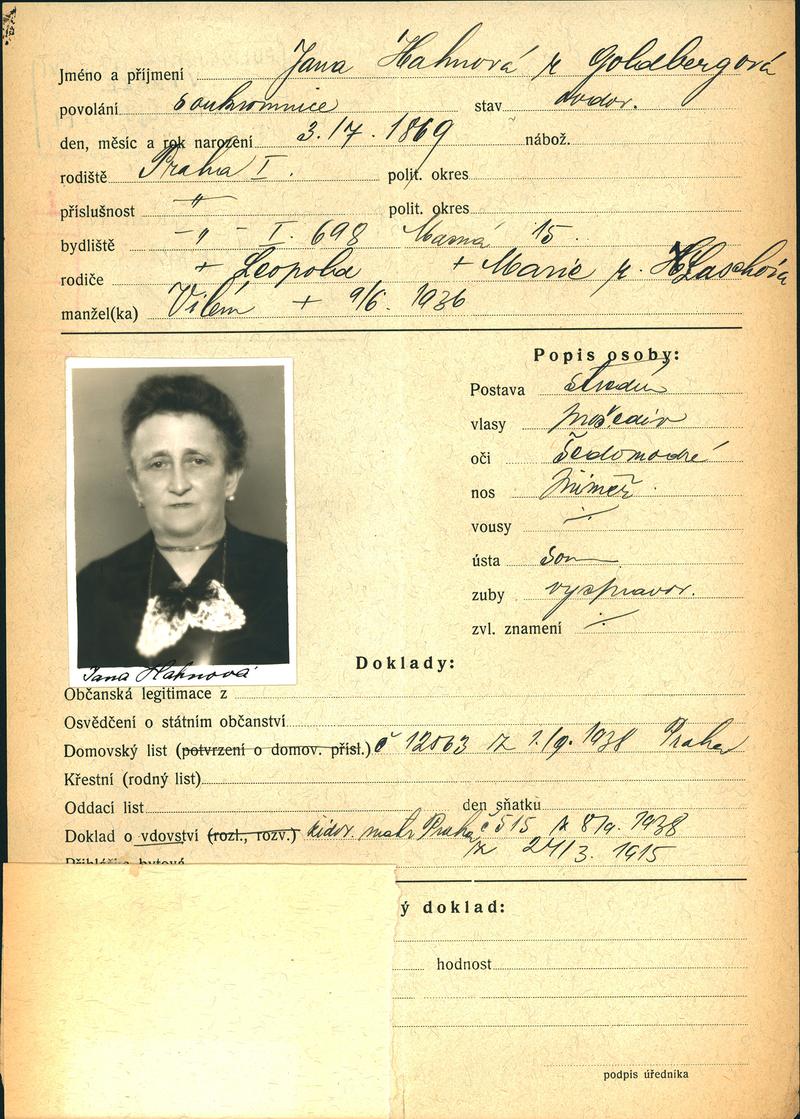 Jméno a příjmení Jana Hahnová r Goldbergová
povolání soukromnice stav vdov.
den, měsíc a rok narození 3./7. 1869 nábož.
rodiště Praha I. polit. okres
příslušnost -"- polit. okres
bydliště -"- I. 698 Masná 15.
rodiče + Leopold + Marie r.
manžel(ka) Vilém + 9/6. 1936
Popis osoby:
Postava střední
vlasy prošediv
oči šedomodré
nos přiměř.
vousy ·/·
ústa
zuby vyspravov.
zvl. znamení ·/·
Jana Hahnová
Doklady:
Občanská legitimace z
Osvědčení o státním občanství
Domovský list (potvrzení o domov. přísl.) č 12563 z 1./9. 1938 Praha
Křestní (rodný list)
Oddací list den sňatku
Doklad o vdovství (rozl., rozv.) židov. matr Praha č 515 z 8/9. 1938
z 24/3. 1915
ý doklad:
hodnost
podpis úředníka